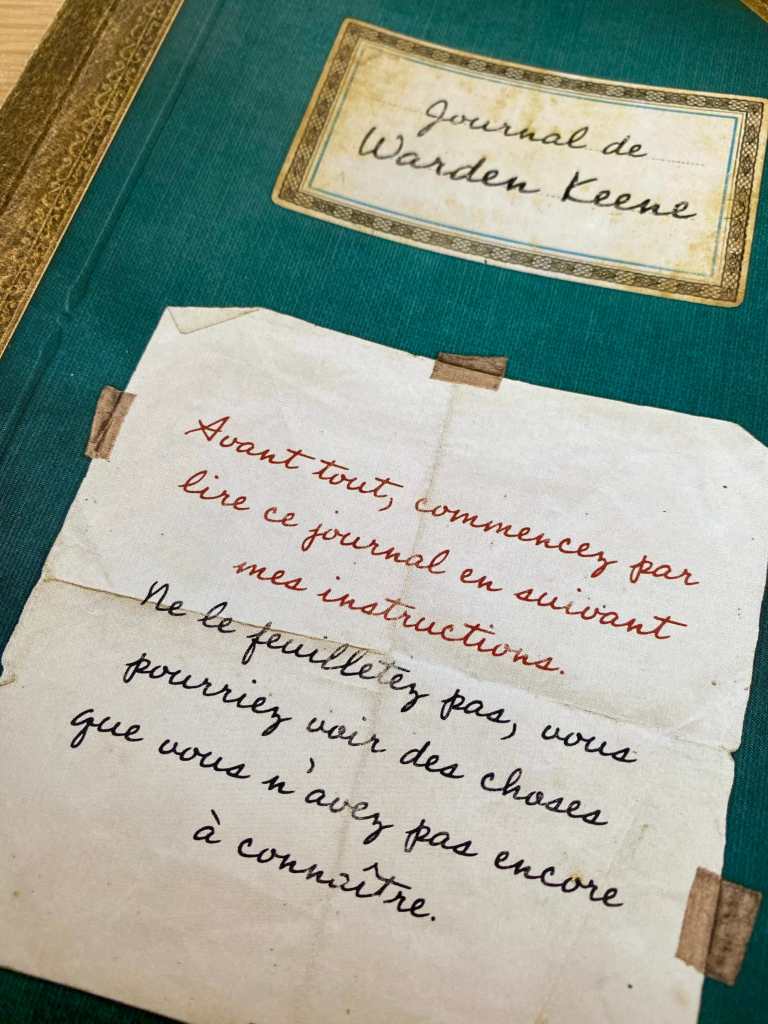 Journal de
Warden Keene
Avant tout, commencez par
lire ce journal en suivant
mes instructions.
Ne le feuilletez pas, vous
pourriez voir des choses
que vous n'avez pas encore
à connaître.